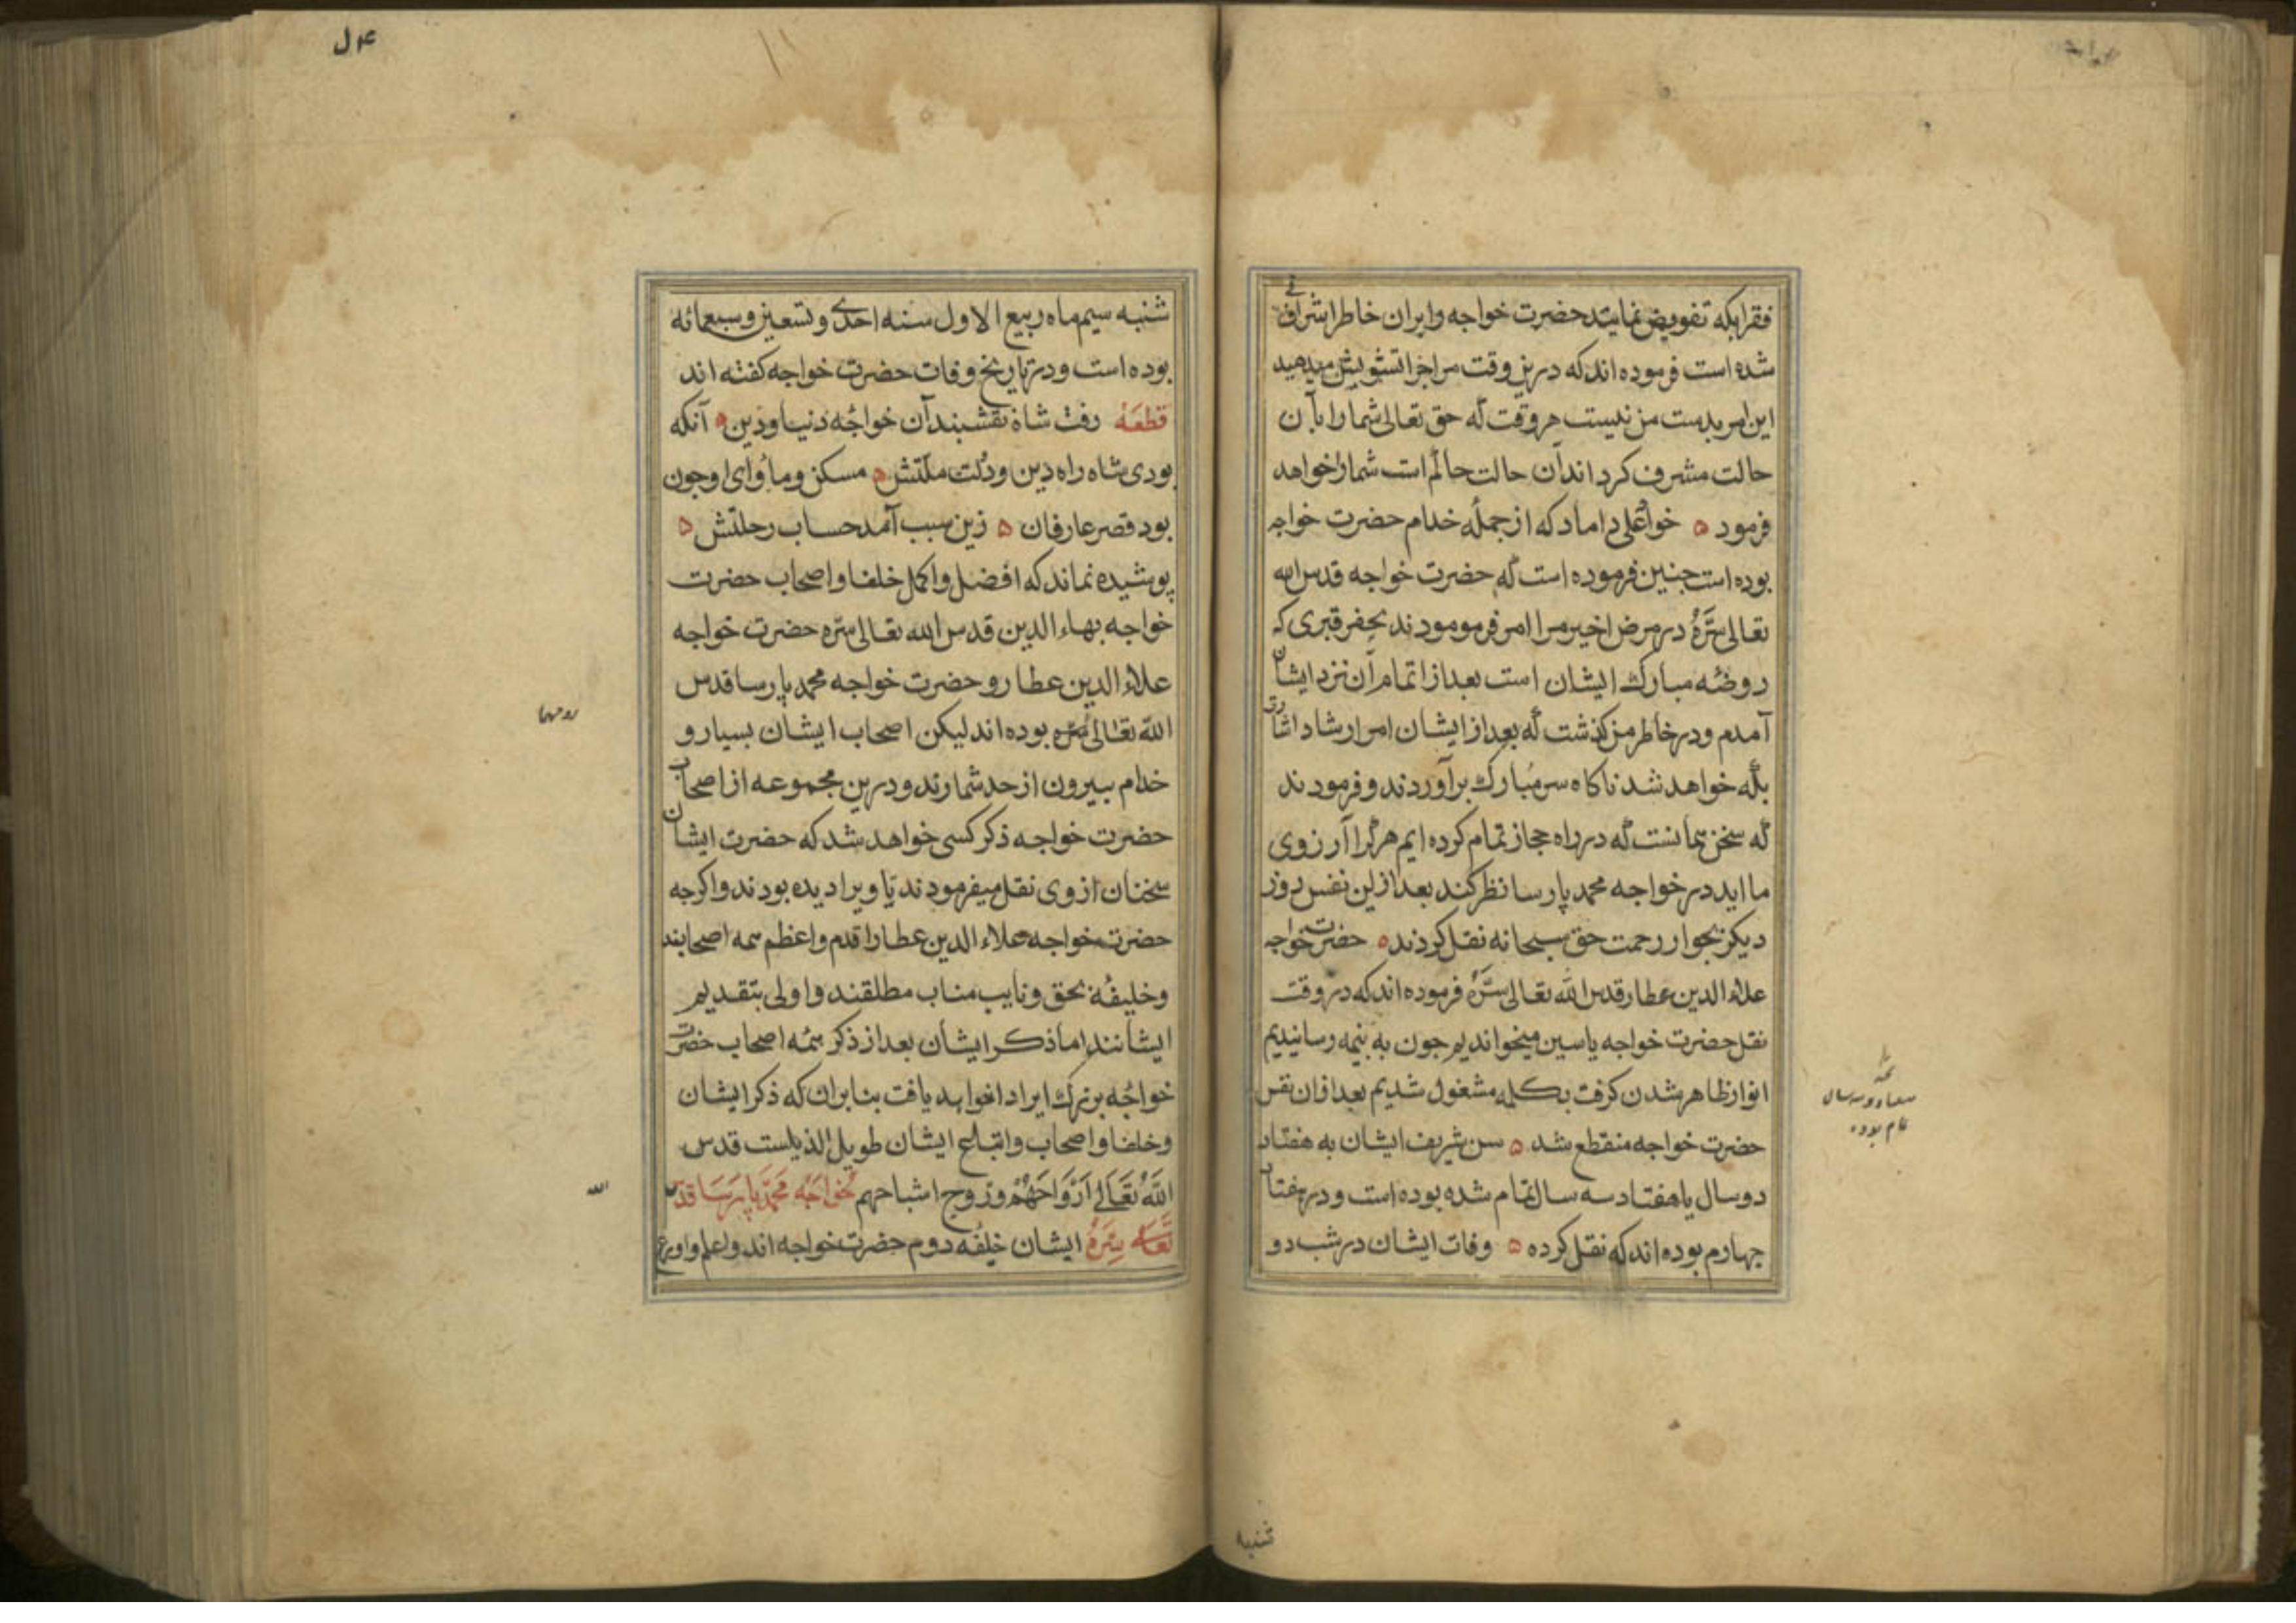 فقرا بكه تفويض نمايند حضرت خواجه را بران خاطر اشرافى
شده است فرموده اند كه درين وقت مرا چرا تشويش ميدهيد
اين امر بدست من نيست هر وقت كه حق تعالى شما را بآن
حالت مشرف كرد اند آن حالت حاكم است شما را خواهد
فرمود ه خواجه على داماد كه از جمله خدام حضرت خواجه
بوده است جنين فرموده است كه حضرت خواجه قدس الله
تعالى سَرّهُ در مرض اخير مرا امر فرمومودند بحفر قبرى كه
روضه مبارك ايشان است بعد از اتمام آن نزد ايشان
آمدم ودر خاطر من كذشت كه بعد از ايشان امر ارشاد اشارت
بكه خواهد شد ناكاه سر مبارك برآوردند وفرمودند
كه سخن همانست كه در راه حجاز تمام كرده ايم هر كرا آرزوى
ما ايد در خواجه محمد پارسا نظر كند بعد ازين نفس روز
ديكر بجوار رحمت حق سبحانه نقل كردند ه حضرت خواجه
علاء الدين عطار قدس الله تعالى سَرّهُ فرموده اند كه در وقت
نقل حضرت خواجه ياسين ميخوانديم جون به نيمه رسانيديم
انوار ظاهر شدن كرفت بكلمه مشغول شديم بعد ازان نفس
حضرت خواجه منقطع شد ه سن شريف ايشان به هفتاد
دوسال ياهفتاد سه سال تمام شده بوده است ودر هفتاد
جهارم بوده اند كه نقل كرده ه وفات ايشان در شب دو
تمام بوده
شنبه
شنبه سيم ماه ربيع الاول سنه احدى وتسعين وسبعمائه
بوده است ودر تاريخ وفات حضرت خواجه كفته اند
قطعَهْ رفت شاه نقشبند آن خواجه دنيا ودين ه آنكه
بودى شاه راه دين ودلت ملّتش ه مسكن ومأواى او جون
بود قصر عارفان ه زين سبب آمد حساب رحلتش ه
پوشيده نماند كه افضل واكمل خلفا واصحاب حضرت
خواجه بهاء الدين قدس الله تعالى سره حضرت خواجه
علاء الدين عطار و حضرت خواجه محمد پارسا قدس
الله تعالى سره بوده اند ليكن اصحاب ايشان بسيار و
روحهما
خدام بيرون از حد شمارند ودرين مجموعه از اصحاب
حضرت خواجه ذكر كسى خواهد شد كه حضرت ايشان
سخنان از وى نقل ميفرمودند يا ويرا ديده بودند واكرجه
حضرت خواجه علاء الدين عطار اقدم واعظم همه اصحابند
وخليفهٔ بحق ونايب مناب مطلقند واولى بتقديم
ايشانند اما ذكر ايشان بعد از ذكر همه اصحاب حضرت
خواجه بزرك ايراد اخواهد يافت بنا بران كه ذكر ايشان
وخلفا واصحاب واتباع ايشان طويل الذيلست قدس
اللَّهُ تَعَالَى اَرْوَاحَهُمْ ورَوح اشباحهم خواجَه مُحَمَّد پارْسَا قدس
الله
تَعَالى سِرّهُ ايشان خليفه دوم حضرت خواجه اند واعلم واورع